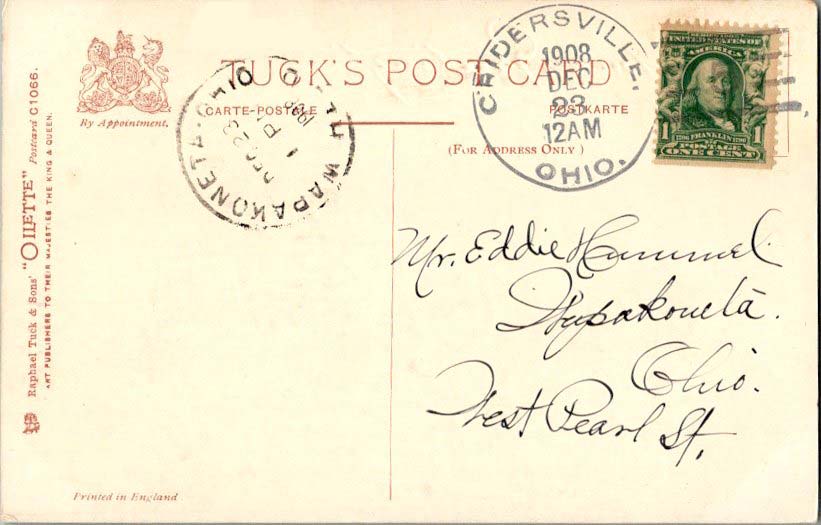 TUCK'S POST CARD
CARTE-POSTALE POSTKARTE
(FOR ADDRESS ONLY)
By Appointment.
Raphael Tuck & Sons' "OILETTE" Postcard C1066.
ART PUBLISHERS TO THEIR MAJESTIES THE KING & QUEEN.
WAPAKONETA OHIO
DEC 23
1 P
CRIDERSVILLE,
1908
DEC
23
12AM
OHIO.
UNITED STATES OF
AMERICA
1 1706 FRANKLIN 1790 1
POSTAGE
ONE CENT
Mr. Eddie Hummel
Wapakoneta.
Ohio.
West Pearl St.
Printed in England